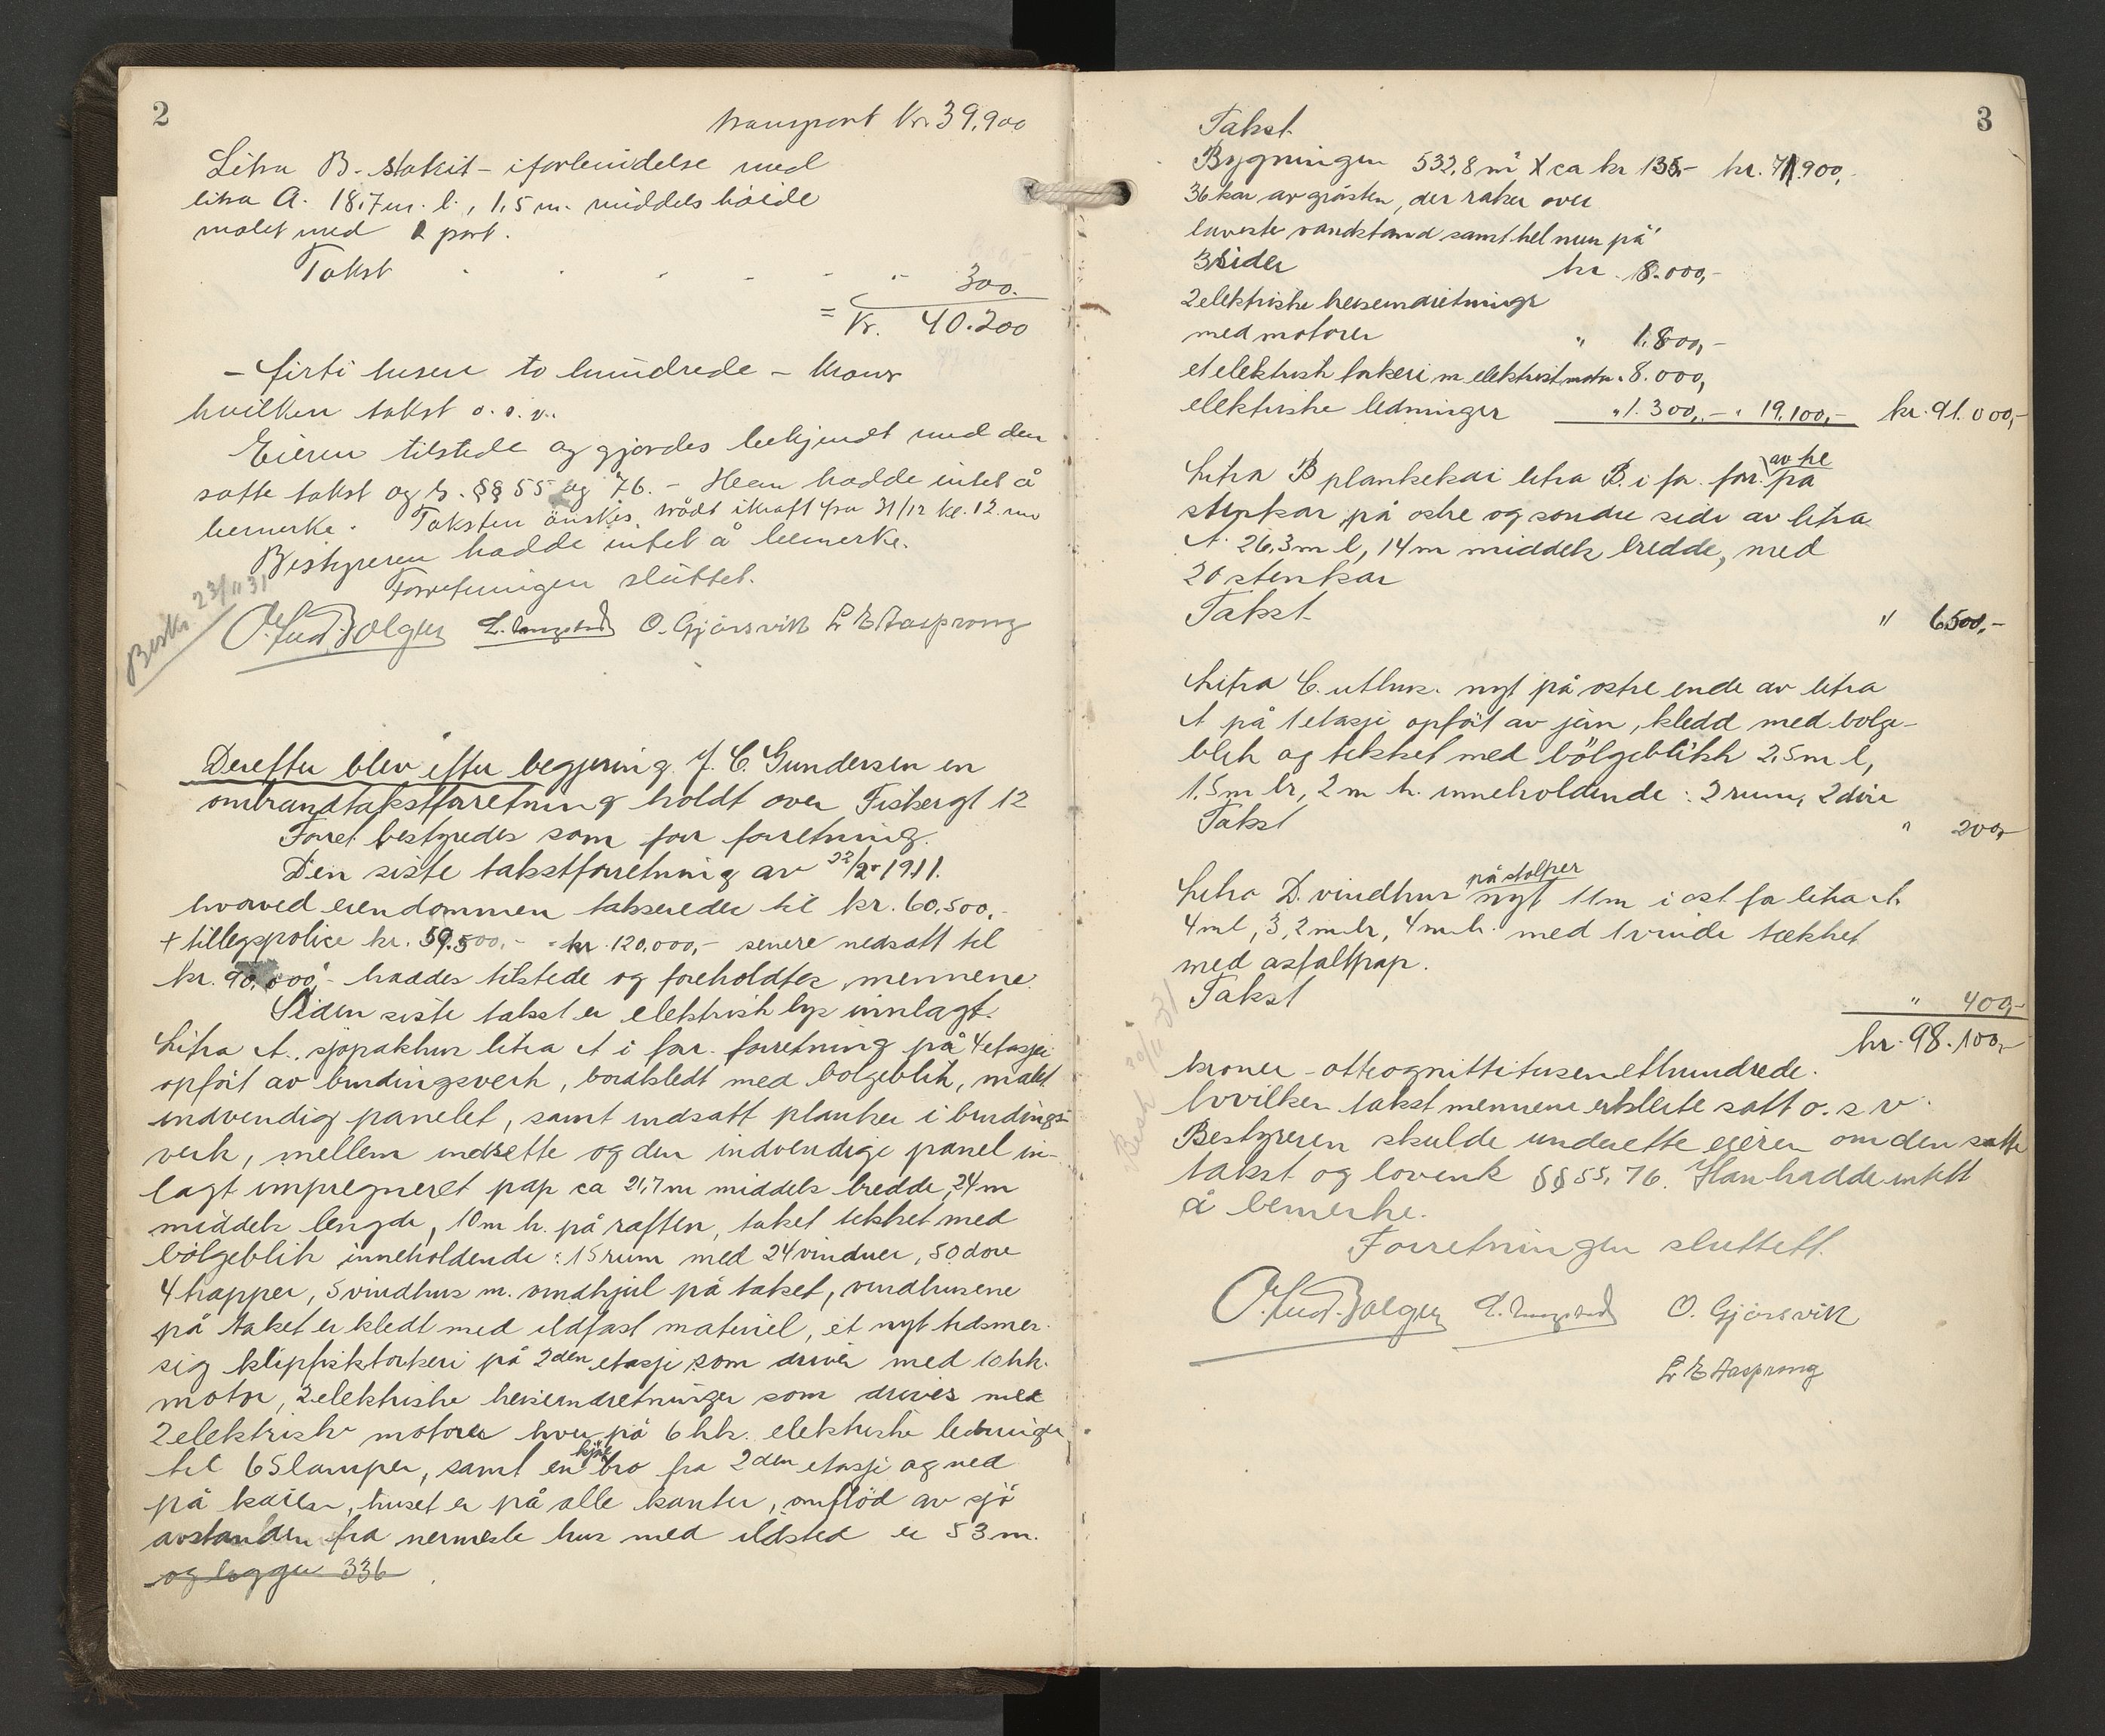 2
transport Kr. 39.900
Litra B. stakit - i forbindelse med
litra A. 18,7 m. l., 1,5 m. middels høide
malet med 2 port.
Takst - - - - " 300.
= Kr. 40.200
- firti tusen to hundrede - kroner
hvilken takst o.s.v.
Eieren tilstede og gjordes bekjendt med den
satte takst og l. §§ 55 og 76. - Han hadde intet å
bemerke. Taksten ønskes trådt i kraft fra 31/12 kl. 12. md
Bestyreren hadde intet å bemerke.
Forretningen sluttet.
Besk. 23/11 31
O. Gjørsvik L E Aasprong
Derefter blev efter begjering J. C. Gundersen en
ombrandtakstforretning holdt over Fiskergt 12
Forret. bestyredes som forr forretning.
Den siste takstforretning av 22/2-1911.
hvorved eiendommen takseredes til kr. 60.500,-
+ tillegspolice kr. 59.500,- = kr. 120.000,- senere nedsatt til
kr. 90.000,- haddes tilstede og foreholdtes mennene.
Siden siste takst er elektrisk lys innlagt.
Litra A. sjøpakhus litra A i forr. forretning på 4 etasjer
opført av bindingsverk, bordkledt med bølgeblik, malt
indvendig panelet, samt indsatt planker i bindings-
verk, mellem indsette og den indvendige panel in-
lagt impregneret pap ca 21,7 m middels bredde, 24 m
middels lengde, 10 m h. på raften, taket tekket med
bølgeblik inneholdende: 15 rum med 24 vinduer, 50 døre
4 trapper, 5 vindhus m. vindhjul på taket, vindhusene
på taket er kledt med ildfast materiel, et nyt tidsmes-
sig klipfisktørkeri på 2den etasje som drives med 10 hk.
motor, 2 elektriske heiseindretninger som drives med
2 elektriske motorer hver på 6 hk. elektriske ledninger
til 65 lamper, samt en kjøre bro fra 2den etasje og ned
på kaien, huset er på alle kanter, omflød av sjø
avstanden fra nermeste hus med ildsted er 53 m.
og legger 336
3
Takst
Bygningen 532,8 m² X ca kr 135,- kr. 71.900,-
36 kar av gråsten, der raker over
laveste vandstand samt hel mur på
3 sider kr. 8.000,-
2 elektriske heiseindretninger
med motorer " 1.800,-
et elektrisk tørkeri m elektrisk motor " 8.000,
elektriske ledninger " 1.300,- " 19.100,- kr. 91.000,-
Litra B plankekai litra B. i for. forr. på av hel
stenkar på østre og søndre side av litra
A. 26,3 m l, 14 m middels bredde, med
20 stenkar
Takst " 6500,-
Litra C. uthus. nyt på østre ende av litra
A på 1 etasje opført av jern, kledd med bølge-
blik og tekket med bölgeblikk 2,5 m l,
1,5 m br, 2 m h. inneholdende: 2 rum, 2 döre
Takst " 200,-
Litra D. vindhus nyt på stolper 11 m i øst for litra A.
4 m l, 3,2 m br, 4 m h. med 1 vinde tækket
med asfaltpap.
Takst " 400,-
kr. 98.100,-
kroner - otteognittitusenethundrede.
hvilken takst mennene erklærte satt o.s.v.
Bestyreren skulde underette eieren om den satte
takst og lovens §§ 55, 76. Han hadde intett
å bemerke.
Forretningen sluttett.
O. Gjørsvik
L E Aasprong